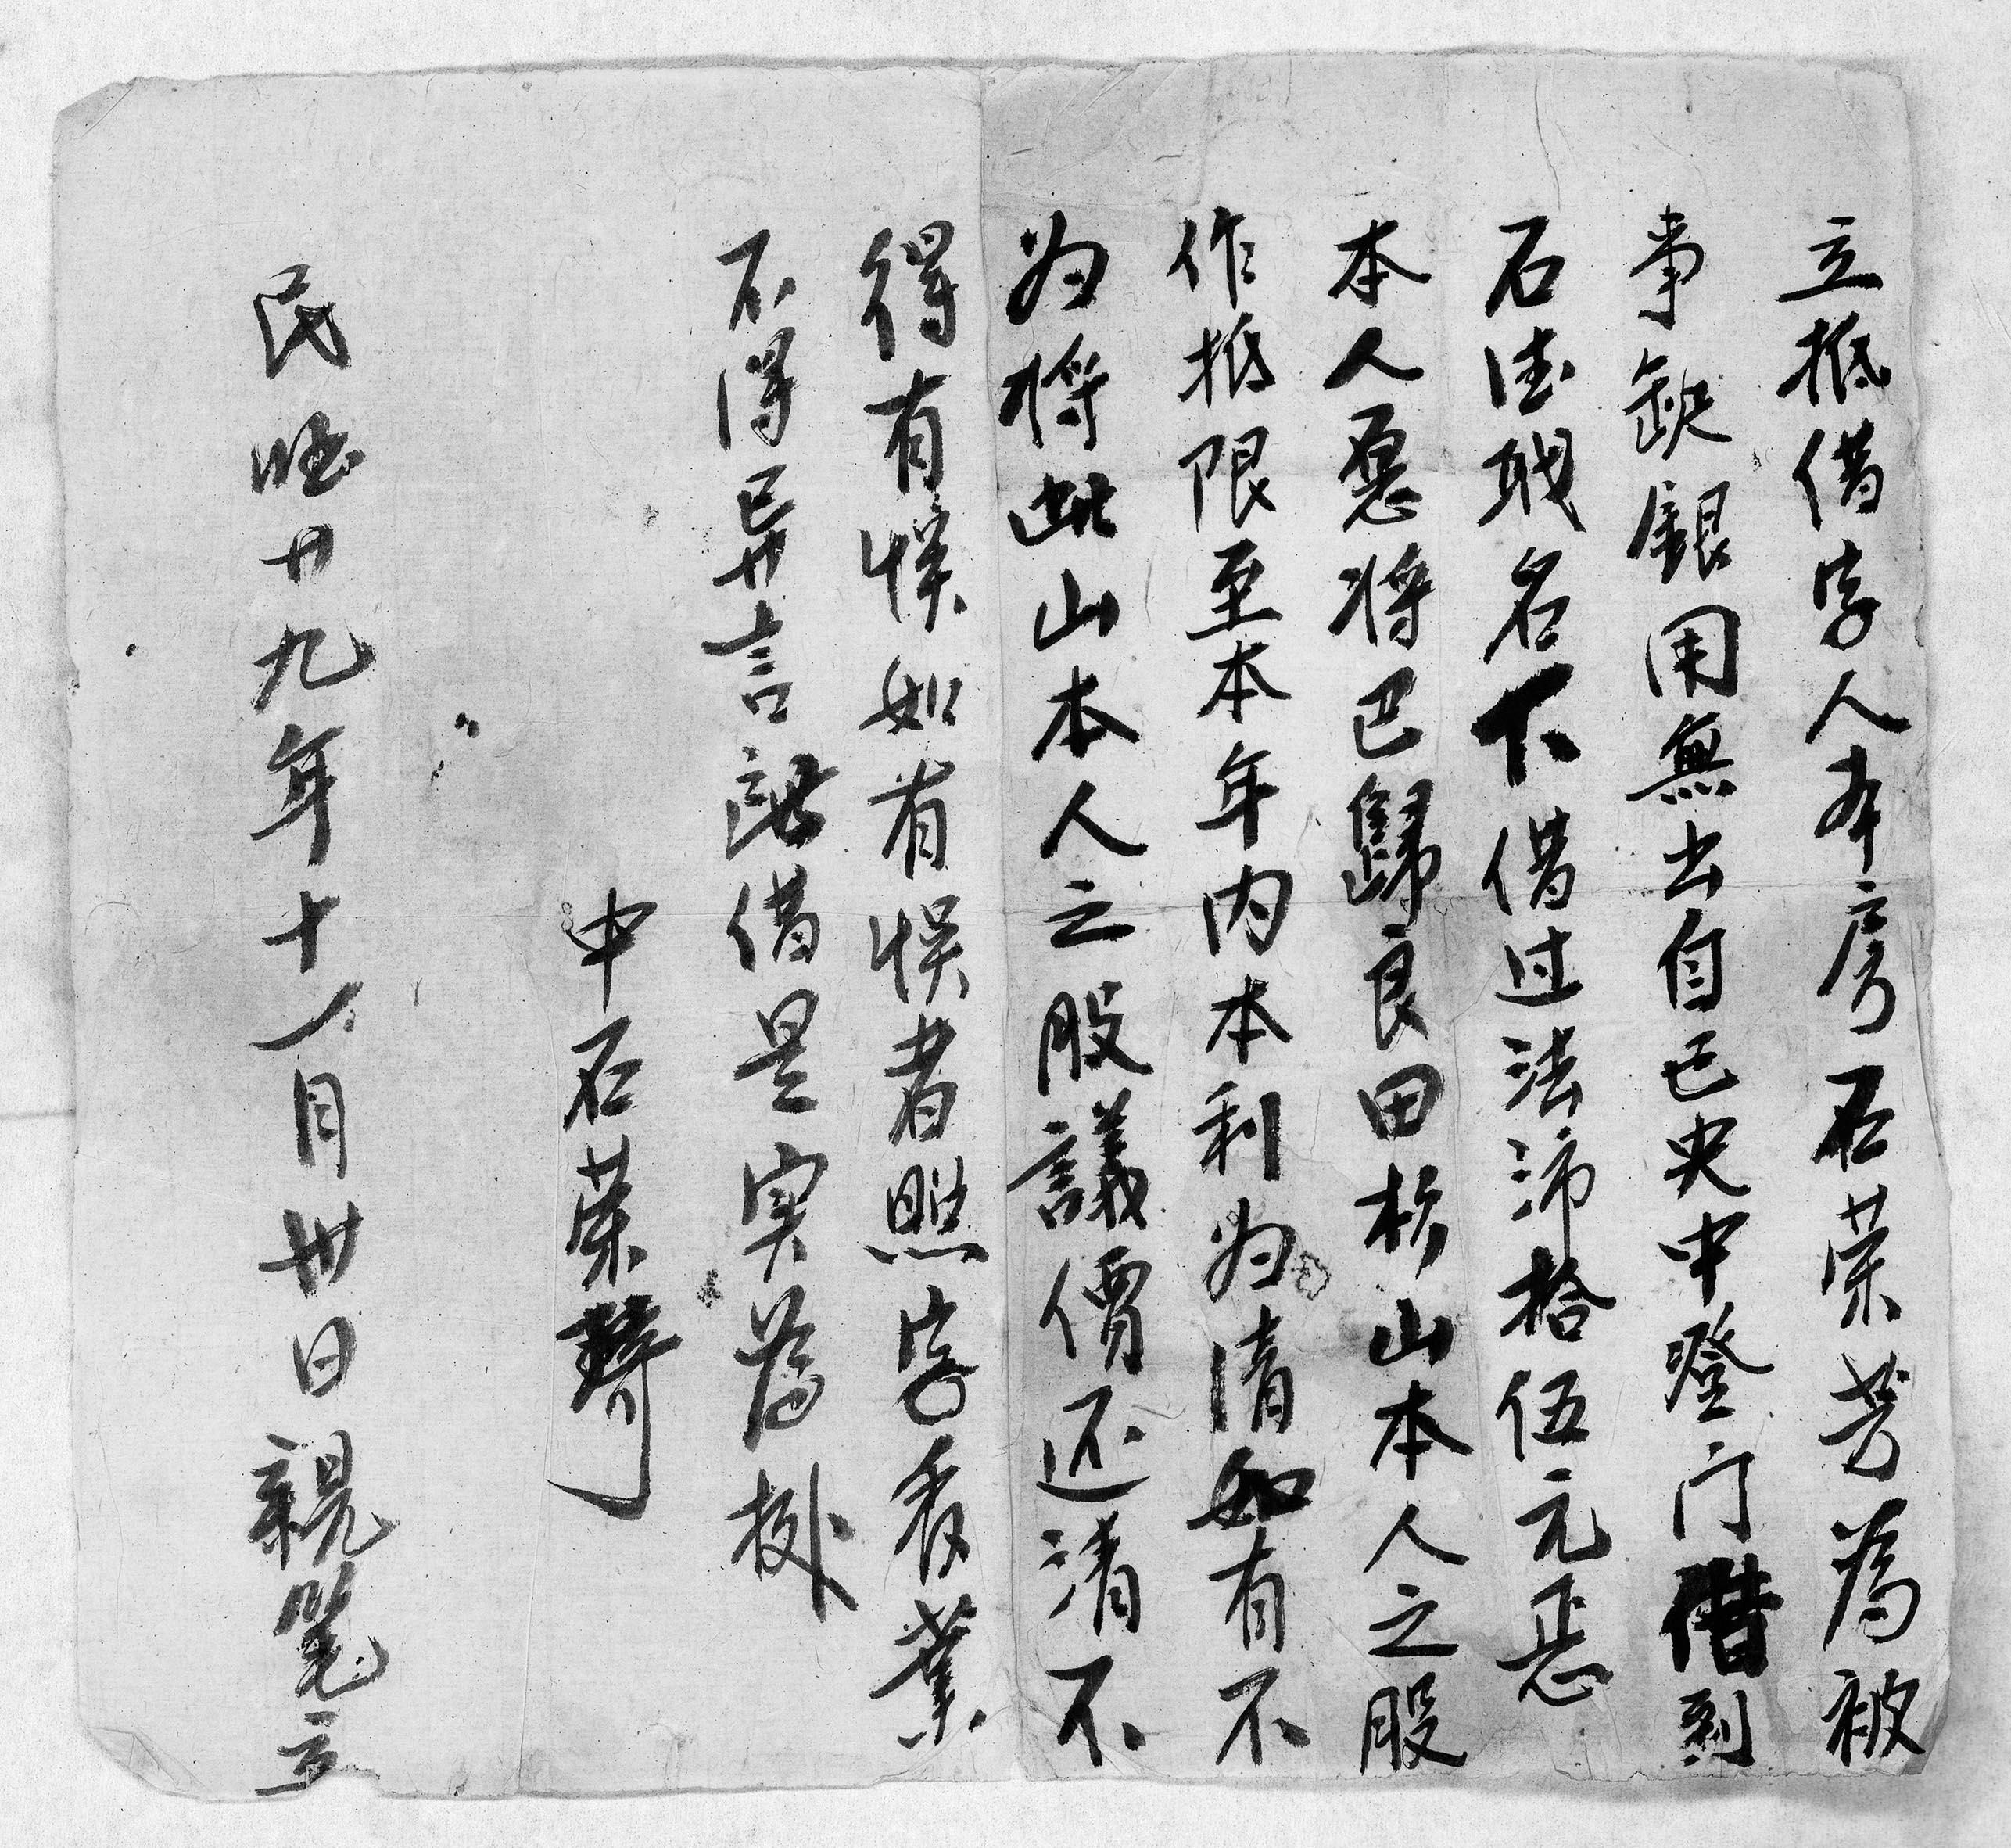 立抵借字人本房石荣芳為被
事缺銀用無出自己央中登门借到
石德職名下借过法沛拾伍元恁
本人愿将巴歸良田杉山本人之股
作抵限至本年内本利为清如有不
为将此山本人之股議價还清不
得有悞如有悞者照字看業
不得异言認借是实為执
中石荣琦
民國廿九年十一月卅日親筆立